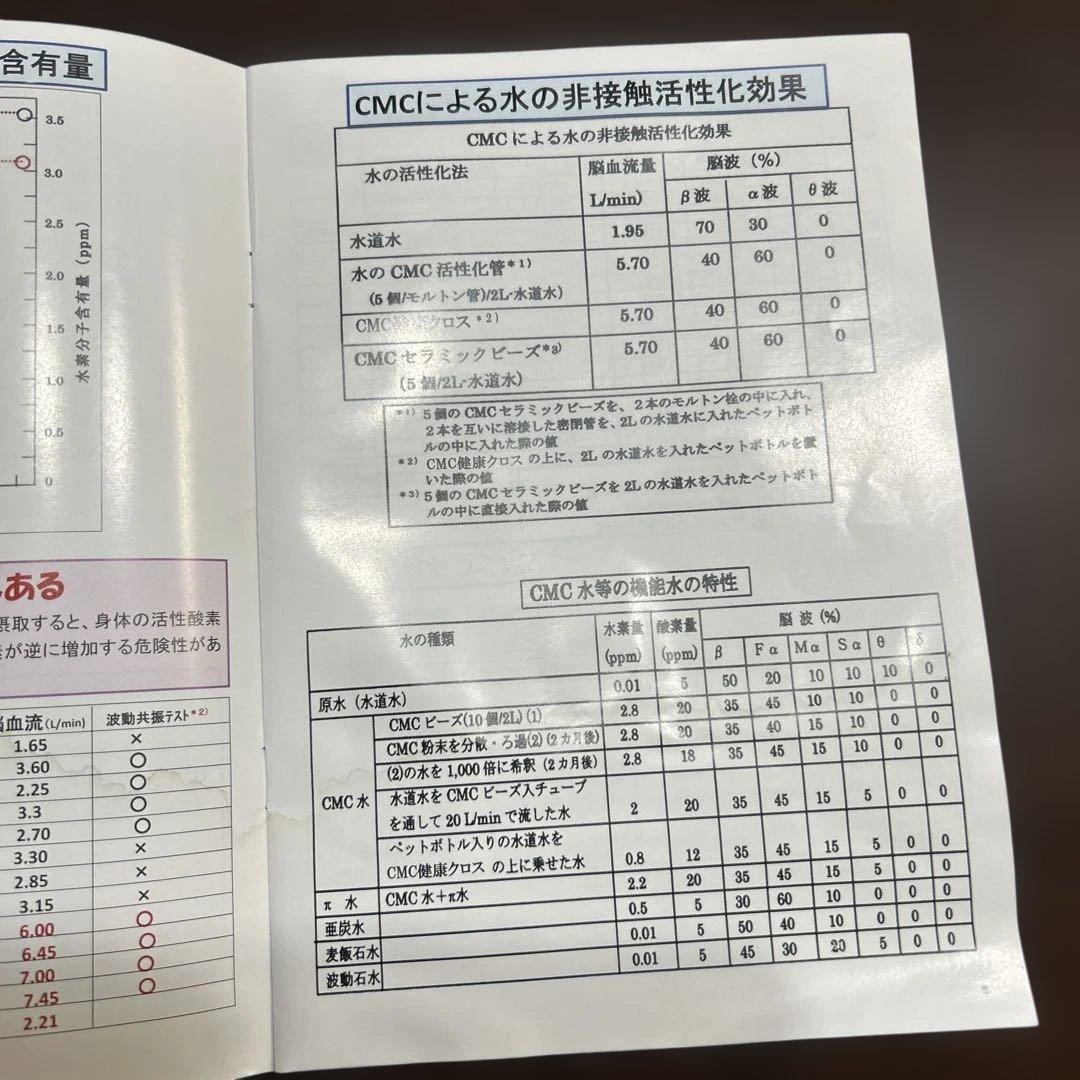 含有量
3.5
3.0
2.5
2.0
1.5
1.0
0.5
0
水素分子含有量 (ppm)
ある
摂取すると、身体の活性酸素
が逆に増加する危険性があ
脳血流(L/min) 波動共振テスト*2)
1.65 ×
3.60 ○
2.25 ○
3.3 ○
2.70 ○
3.30 ×
2.85 ×
3.15 ×
6.00 ○
6.45 ○
7.00 ○
7.45 ○
2.21
CMCによる水の非接触活性化効果
CMCによる水の非接触活性化効果
水の活性化法 脳血流量 脳波(%)
L/min) β波 α波 θ波
水道水 1.95 70 30 0
水のCMC活性化管*1) 5.70 40 60 0
(5個/モルトン管)/2L-水道水)
CMC健康クロス*2) 5.70 40 60 0
CMCセラミックビーズ*3) 5.70 40 60 0
(5個/2L-水道水)
*1) 5個のCMCセラミックビーズを、2本のモルトン栓の中に入れ、
2本を互いに溶接した密閉管を、2Lの水道水に入れたペットボト
ルの中に入れた際の値
*2) CMC健康クロスの上に、2Lの水道水を入れたペットボトルを置
いた際の値
*3) 5個のCMCセラミックビーズを2Lの水道水を入れたペットボト
ルの中に直接入れた際の値
CMC水等の機能水の特性
水の種類 水素量 酸素量 脳波(%)
(ppm) (ppm) β Fα Mα Sα θ δ
原水(水道水) 0.01 5 50 20 10 10 10 0
CMCビーズ(10個/2L)(1) 2.8 20 35 45 10 10 0 0
CMC粉末を分散・ろ過(2)(2カ月後) 2.8 20 35 40 15 10 0 0
(2)の水を1,000倍に希釈(2カ月後) 2.8 18 35 45 15 10 0 0
CMC水 水道水をCMCビーズ入チューブ
を通して20 L/minで流した水 2 20 35 45 15 5 0 0
ペットボトル入りの水道水を
CMC健康クロスの上に乗せた水 0.8 12 35 45 15 5 0 0
π水 CMC水+π水 2.2 20 35 45 15 5 0 0
亜炭水 0.5 5 30 60 10 0 0 0
麦飯石水 0.01 5 50 40 10 0 0 0
波動石水 0.01 5 45 30 20 5 0 0